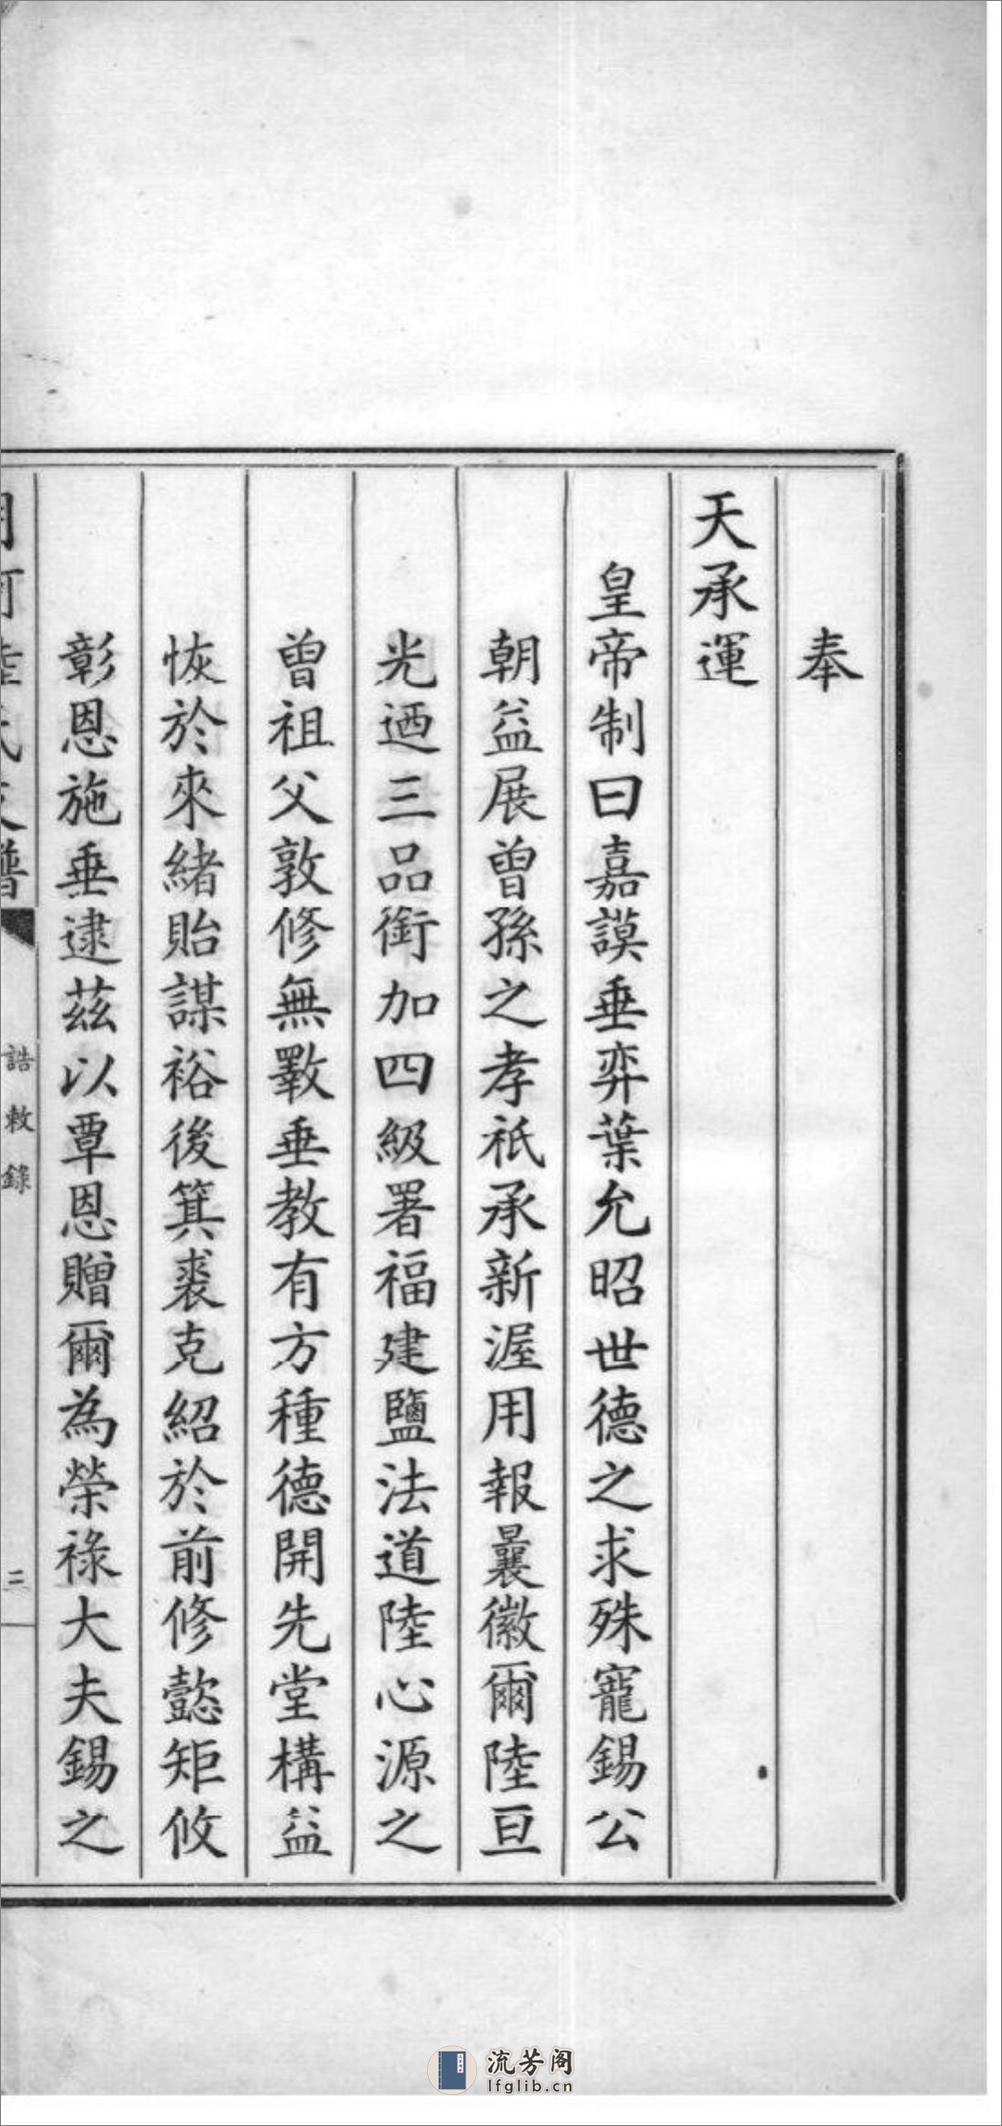 奉
天承運
皇帝制曰嘉謨垂弈葉允昭世德之求殊寵錫公
朝益展曾孫之孝祇承新渥用報曩徽爾陸亘
光迺三品銜加四級署福建鹽法道陸心源之
曾祖父敦修無斁垂教有方種德開先堂構益
恢於來緒貽謀裕後箕裘克紹於前修懿矩攸
彰恩施垂逮茲以覃恩贈爾為榮祿大夫錫之
誥敕錄
三
流芳阁
lfglib.cn